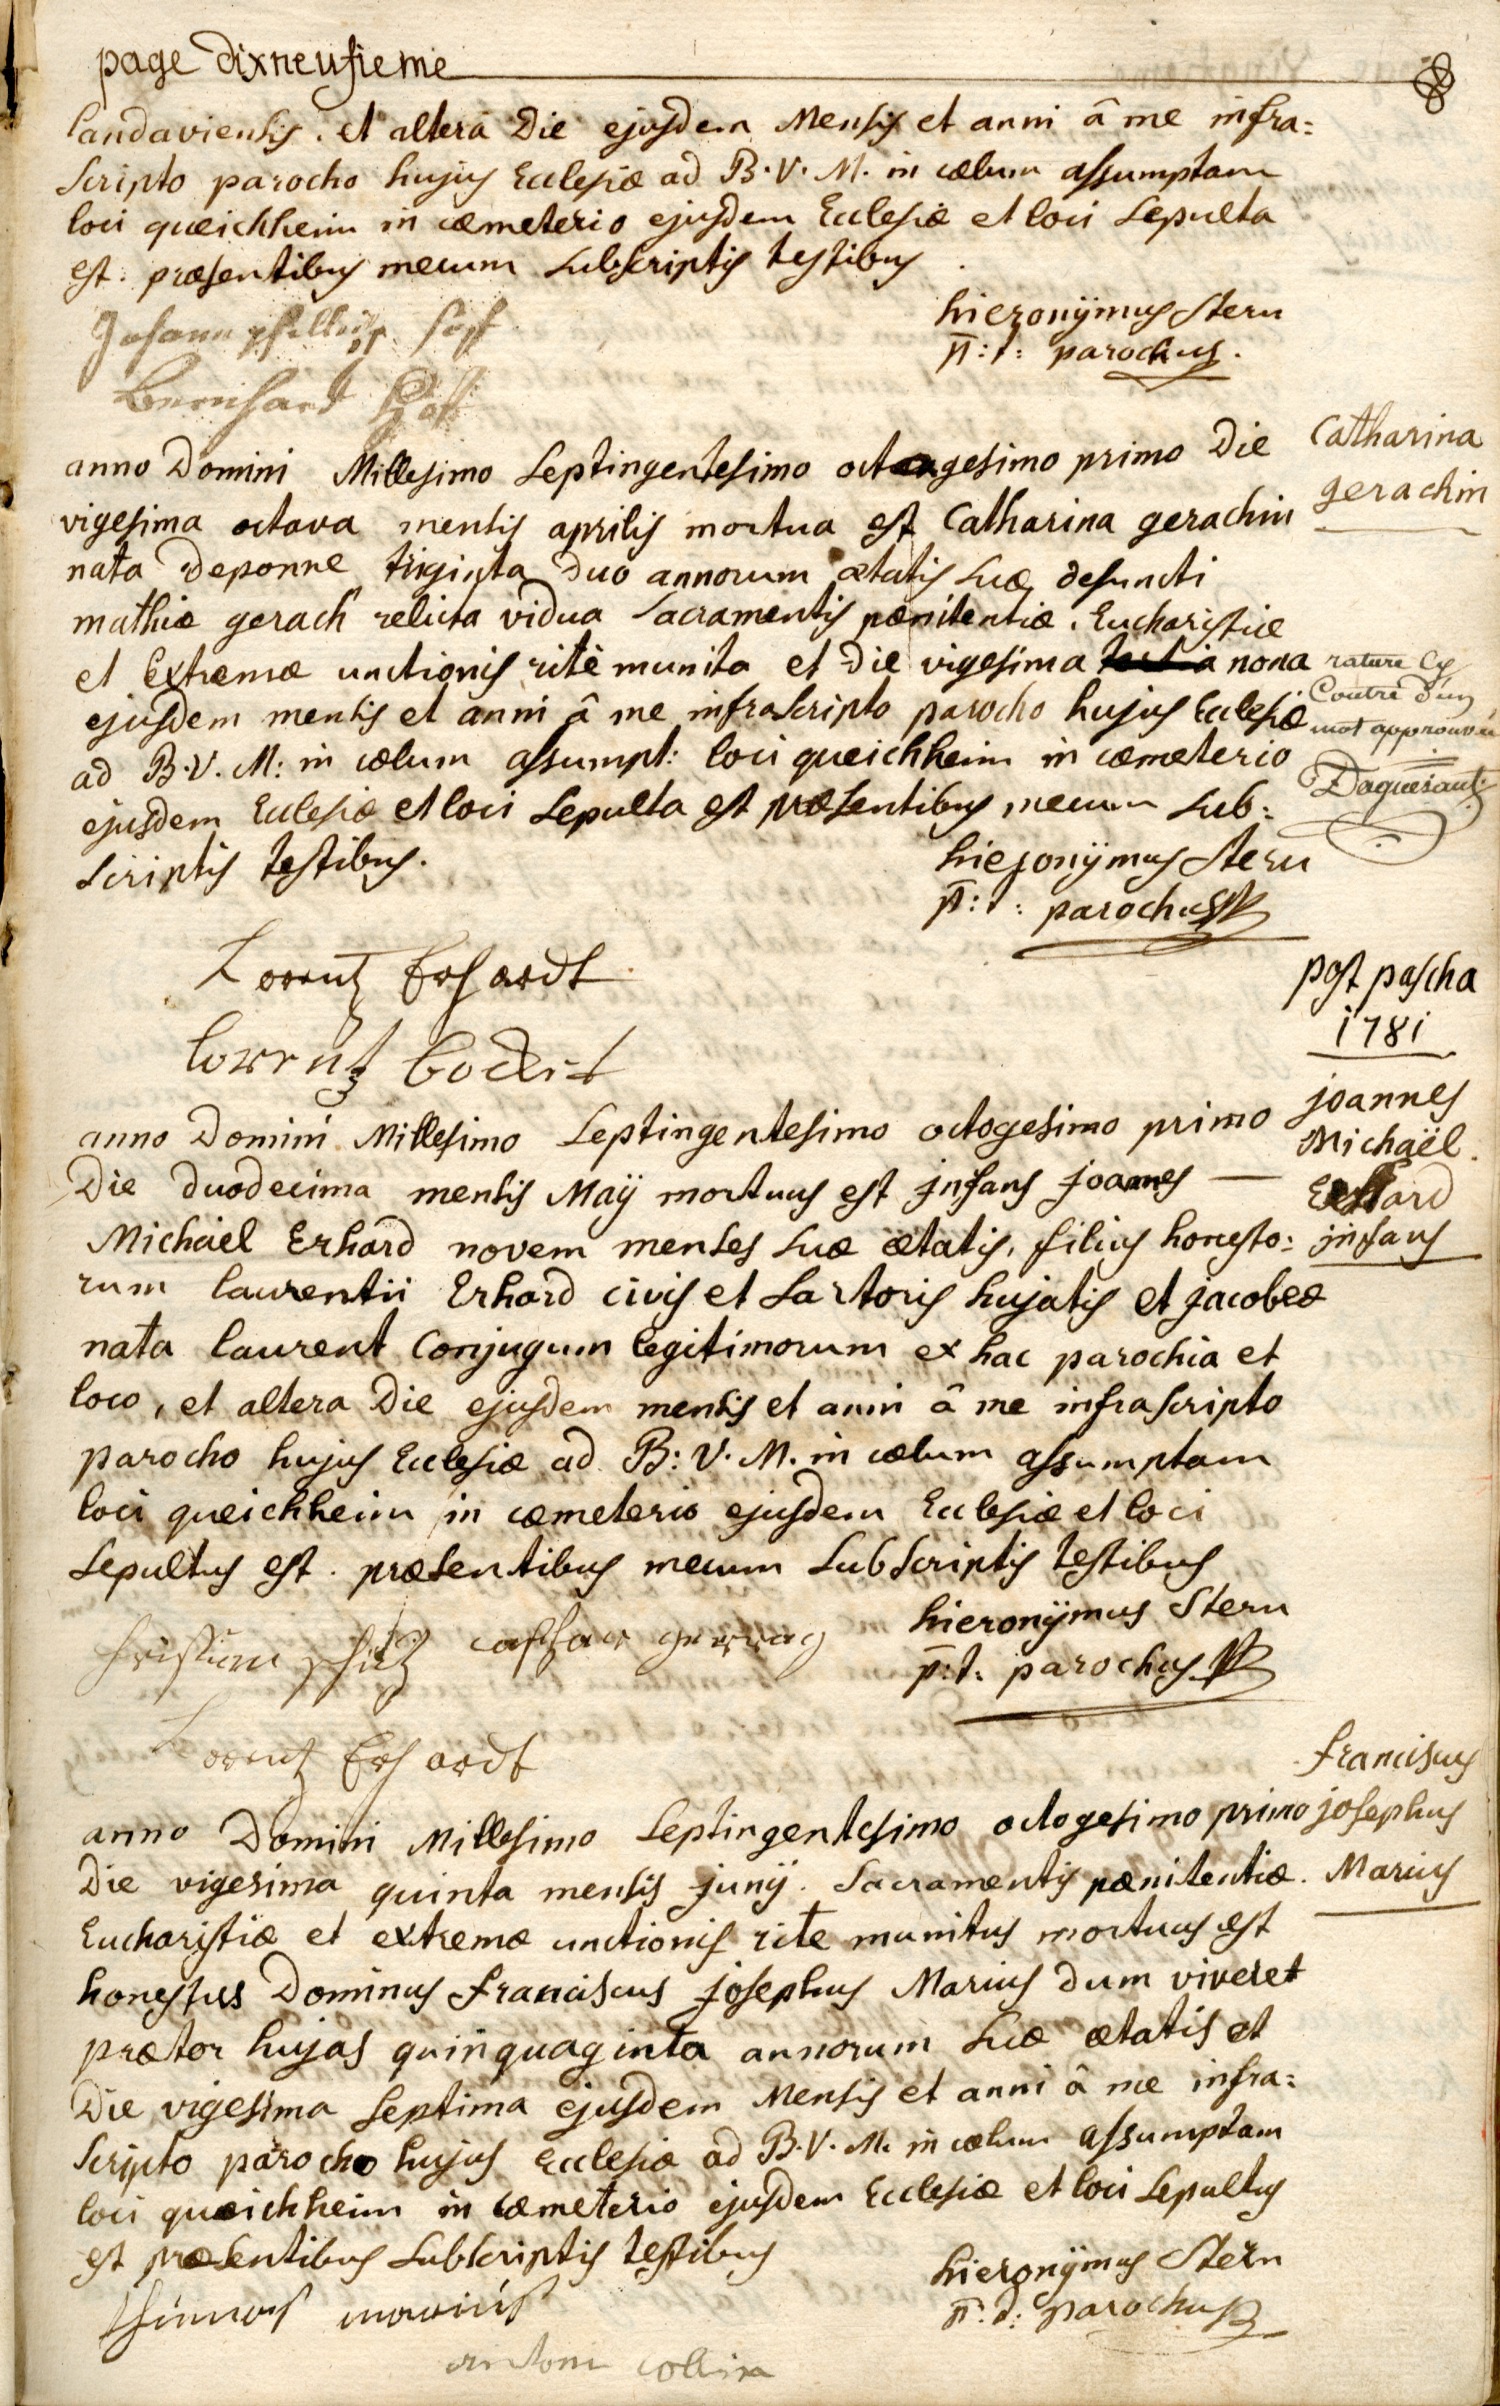 page Dixneufieme
landaviensis. et altera Die ejusdem Mensis et anni â me infra=
scripto parocho hujus Ecclesiæ ad B. V. M. in cælum assumptam
loci queichheim in cæmeterio ejusdem Ecclesiæ et loci sepulta
est. præsentibus mecum subscriptis testibus
hieronÿmus Stern
p: t: parochus.
Johann
Bernhard
Catharina
gerachin
anno Domini Millesimo septingentesimo octogesimo primo Die
vigesima octava mensis aprilis mortua est Catharina gerachin
nata Deponne triginta duo annorum ætatis suæ, defuncti
mathiæ gerach relicta vidua sacramentis pænitentiæ, Eucharistiæ
et Extremæ unctionis ritè munita et Die vigesima nona
rature Cy
Contre d'un
mot approuvée
Daguesaut
ejusdem mensis et anni â me infrascripto parocho hujus Ecclesiæ
ad B. V. M: in cælum assumpt: loci queichheim in cæmeterio
ejusdem Ecclesiæ et loci sepulta est præsentibus mecum sub=
scriptis testibus.
hieronÿmus Stern
p: t: parochus
Lorentz Erhardt
Lorrentz
post pascha
1781
joannes
Michaël
Erhard
jnfans
anno Domini Millesimo septingentesimo octogesimo primo
Die duodecima mensis Maÿ mortuus est jnfans joannes —
Michael Erhard novem menses suæ ætatis, filius honesto=
rum laurentii Erhard civis et sartoris hujatis et jacobeæ
nata laurent Conjugum legitimorum ex hac parochia et
loco, et altera Die ejusdem mensis et anni â me infrascripto
parocho hujus Ecclesiæ ad B: V. M. in cælum assumptam
loci queichheim in cæmeterio ejusdem Ecclesiæ et loci
sepultus est. præsentibus mecum subscriptis testibus
hieronÿmus Stern
p: t: parochus
Lorentz Erhardt
franciscus
josephus
Marius
anno Domini Millesimo septingentesimo octogesimo primo
Die vigesima quinta mensis junÿ. Sacramentis pænitentiæ.
Eucharistiæ et extremæ unctionis rite munitus mortuus est
honestus Dominus franciscus josephus Marius dum viveret
prætor hujas quinquaginta annorum suæ ætatis et
Die vigesima septima ejusdem Mensis et anni â me infra=
scripto parocho hujus Ecclesiæ ad B. V. M. in cælum assumptam
loci queichheim in cæmeterio ejusdem Ecclesiæ et loci sepultus
est præsentibus subscriptis testibus
hieronÿmus Stern
p: t: parochus
antoni collira